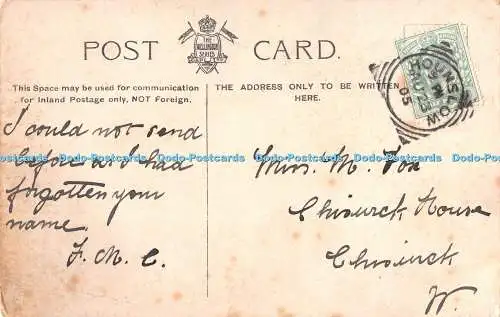 POST CARD.
THE
WELLINGTON
SERIES
This Space may be used for communication
for Inland Postage only, NOT Foreign.
THE ADDRESS ONLY TO BE WRITTEN
HERE.
HOUNSLOW
05
I could not send
before as I had
forgotten your
name.
F. M. C.
Miss. M. Fox
Chiswick House
Chiswick
W.
Dodo-Postcards Dodo-Postcards Dodo-Postcards Dodo-Postcards Dodo-Postcards